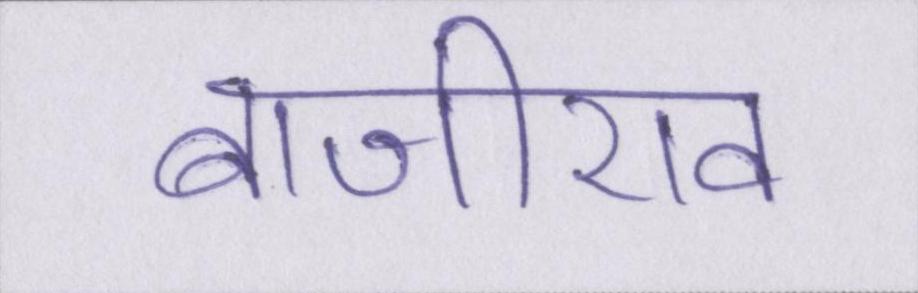 बाजीराव